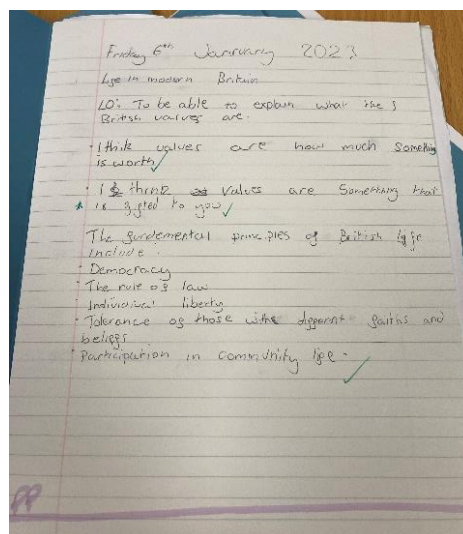 Friday 6th Janruary 2023
Life in modern Britain
LO: To be able to explain what the 5
British values are.
· I think values are how much something
is worth
· I think values are something that
* is gifted to you
The fundemental principles of British life
include:
· Democracy
· The rule of law
Individual liberty
· Tolerance of those withe different faiths and
beliefs
· Participation in community life.